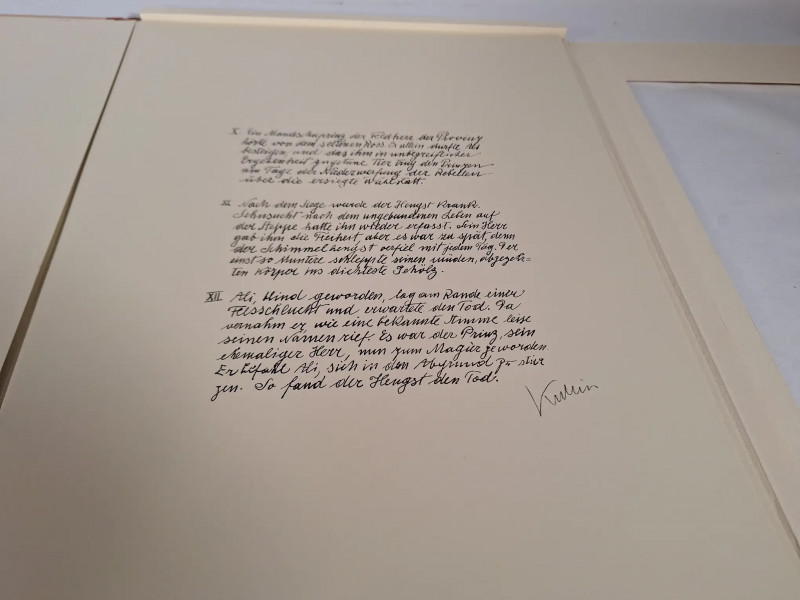 X. Ein Mandschuprinz der Feldherr der Provinz
hörte von dem seltenen Ross. Er allein durfte Ali
besteigen und das ihm in unbegreiflicher
Ergebenheit zugetane Tier trug den Prinzen
am Tage der Niederwerfung der Rebellen
über die ersiegte Wahlstatt.
XI. Nach dem Siege wurde der Hengst krank.
Sehnsucht nach dem ungebundenen Leben auf
der Steppe hatte ihn wieder erfasst. Sein Herr
gab ihm die Freiheit, aber es war zu spät, denn
der Schimmelhengst verfiel mit jedem Tag. Der
einst so Muntere schleppte seinen müden, abgezehr-
ten Körper ins dichteste Gehölz.
XII. Ali, blind geworden, lag am Rande einer
Felsschlucht und erwartete den Tod. Da
vernahm er, wie eine bekannte Stimme leise
seinen Namen rief. Es war der Prinz, sein
ehemaliger Herr, nun zum Magier geworden.
Er befahl Ali, sich in den Abgrund zu stür
zen. So fand der Hengst den Tod.
Kubin